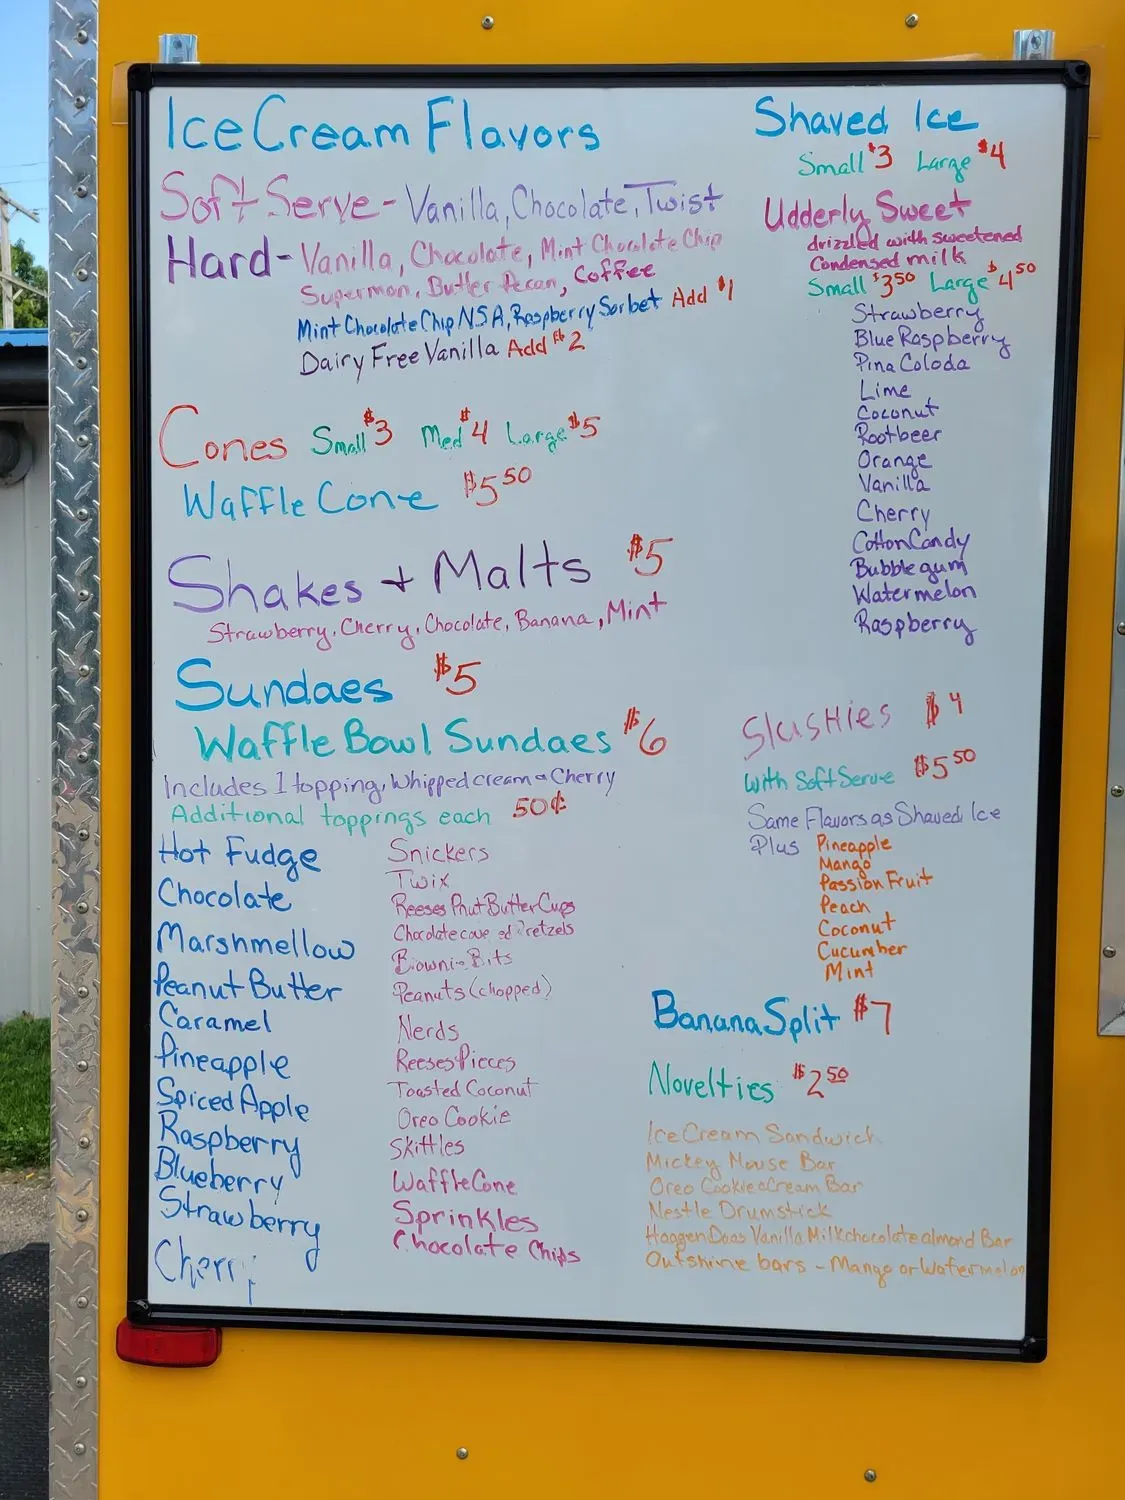 Ice Cream Flavors
Soft Serve - Vanilla, Chocolate, Twist
Hard - Vanilla, Chocolate, Mint Chocolate Chip
Superman, Butter Pecan, Coffee
Mint Chocolate Chip NSA, Raspberry Sorbet Add $1
Dairy Free Vanilla Add $2
Cones Small $3 Med $4 Large $5
Waffle Cone $5 50
Shakes + Malts $5
Strawberry, Cherry, Chocolate, Banana, Mint
Sundaes $5
Waffle Bowl Sundaes $6
Includes 1 topping, Whipped cream & Cherry
Additional toppings each 50¢
Hot Fudge
Chocolate
Marshmellow
Peanut Butter
Caramel
Pineapple
Spiced Apple
Raspberry
Blueberry
Strawberry
Cherry
Snickers
Twix
Reeses Pnut Butter Cups
Chocolate cove ed Pretzels
Brownie Bits
Peanuts (chopped)
Nerds
Reeses Pieces
Toasted Coconut
Oreo Cookie
Skittles
Waffle Cone
Sprinkles
Chocolate Chips
Shaved Ice
Small $3 Large $4
Udderly Sweet
drizzled with sweetened
Condensed milk
Small $3 50 Large $4 50
Strawberry
Blue Raspberry
Pina Coloda
Lime
Coconut
Rootbeer
Orange
Vanilla
Cherry
Cotton Candy
Bubble gum
Watermelon
Raspberry
Slushies $4
With Soft Serve $5 50
Same Flavors as Shaved Ice
Plus Pineapple
Mango
Passion Fruit
Peach
Coconut
Cucumber
Mint
Banana Split $7
Novelties $2 50
Ice Cream Sandwich
Mickey Mouse Bar
Oreo Cookie & Cream Bar
Nestle Drumstick
Haagen Daas Vanilla Milk chocolate almond Bar
Outshine bars - Mango or Watermelon